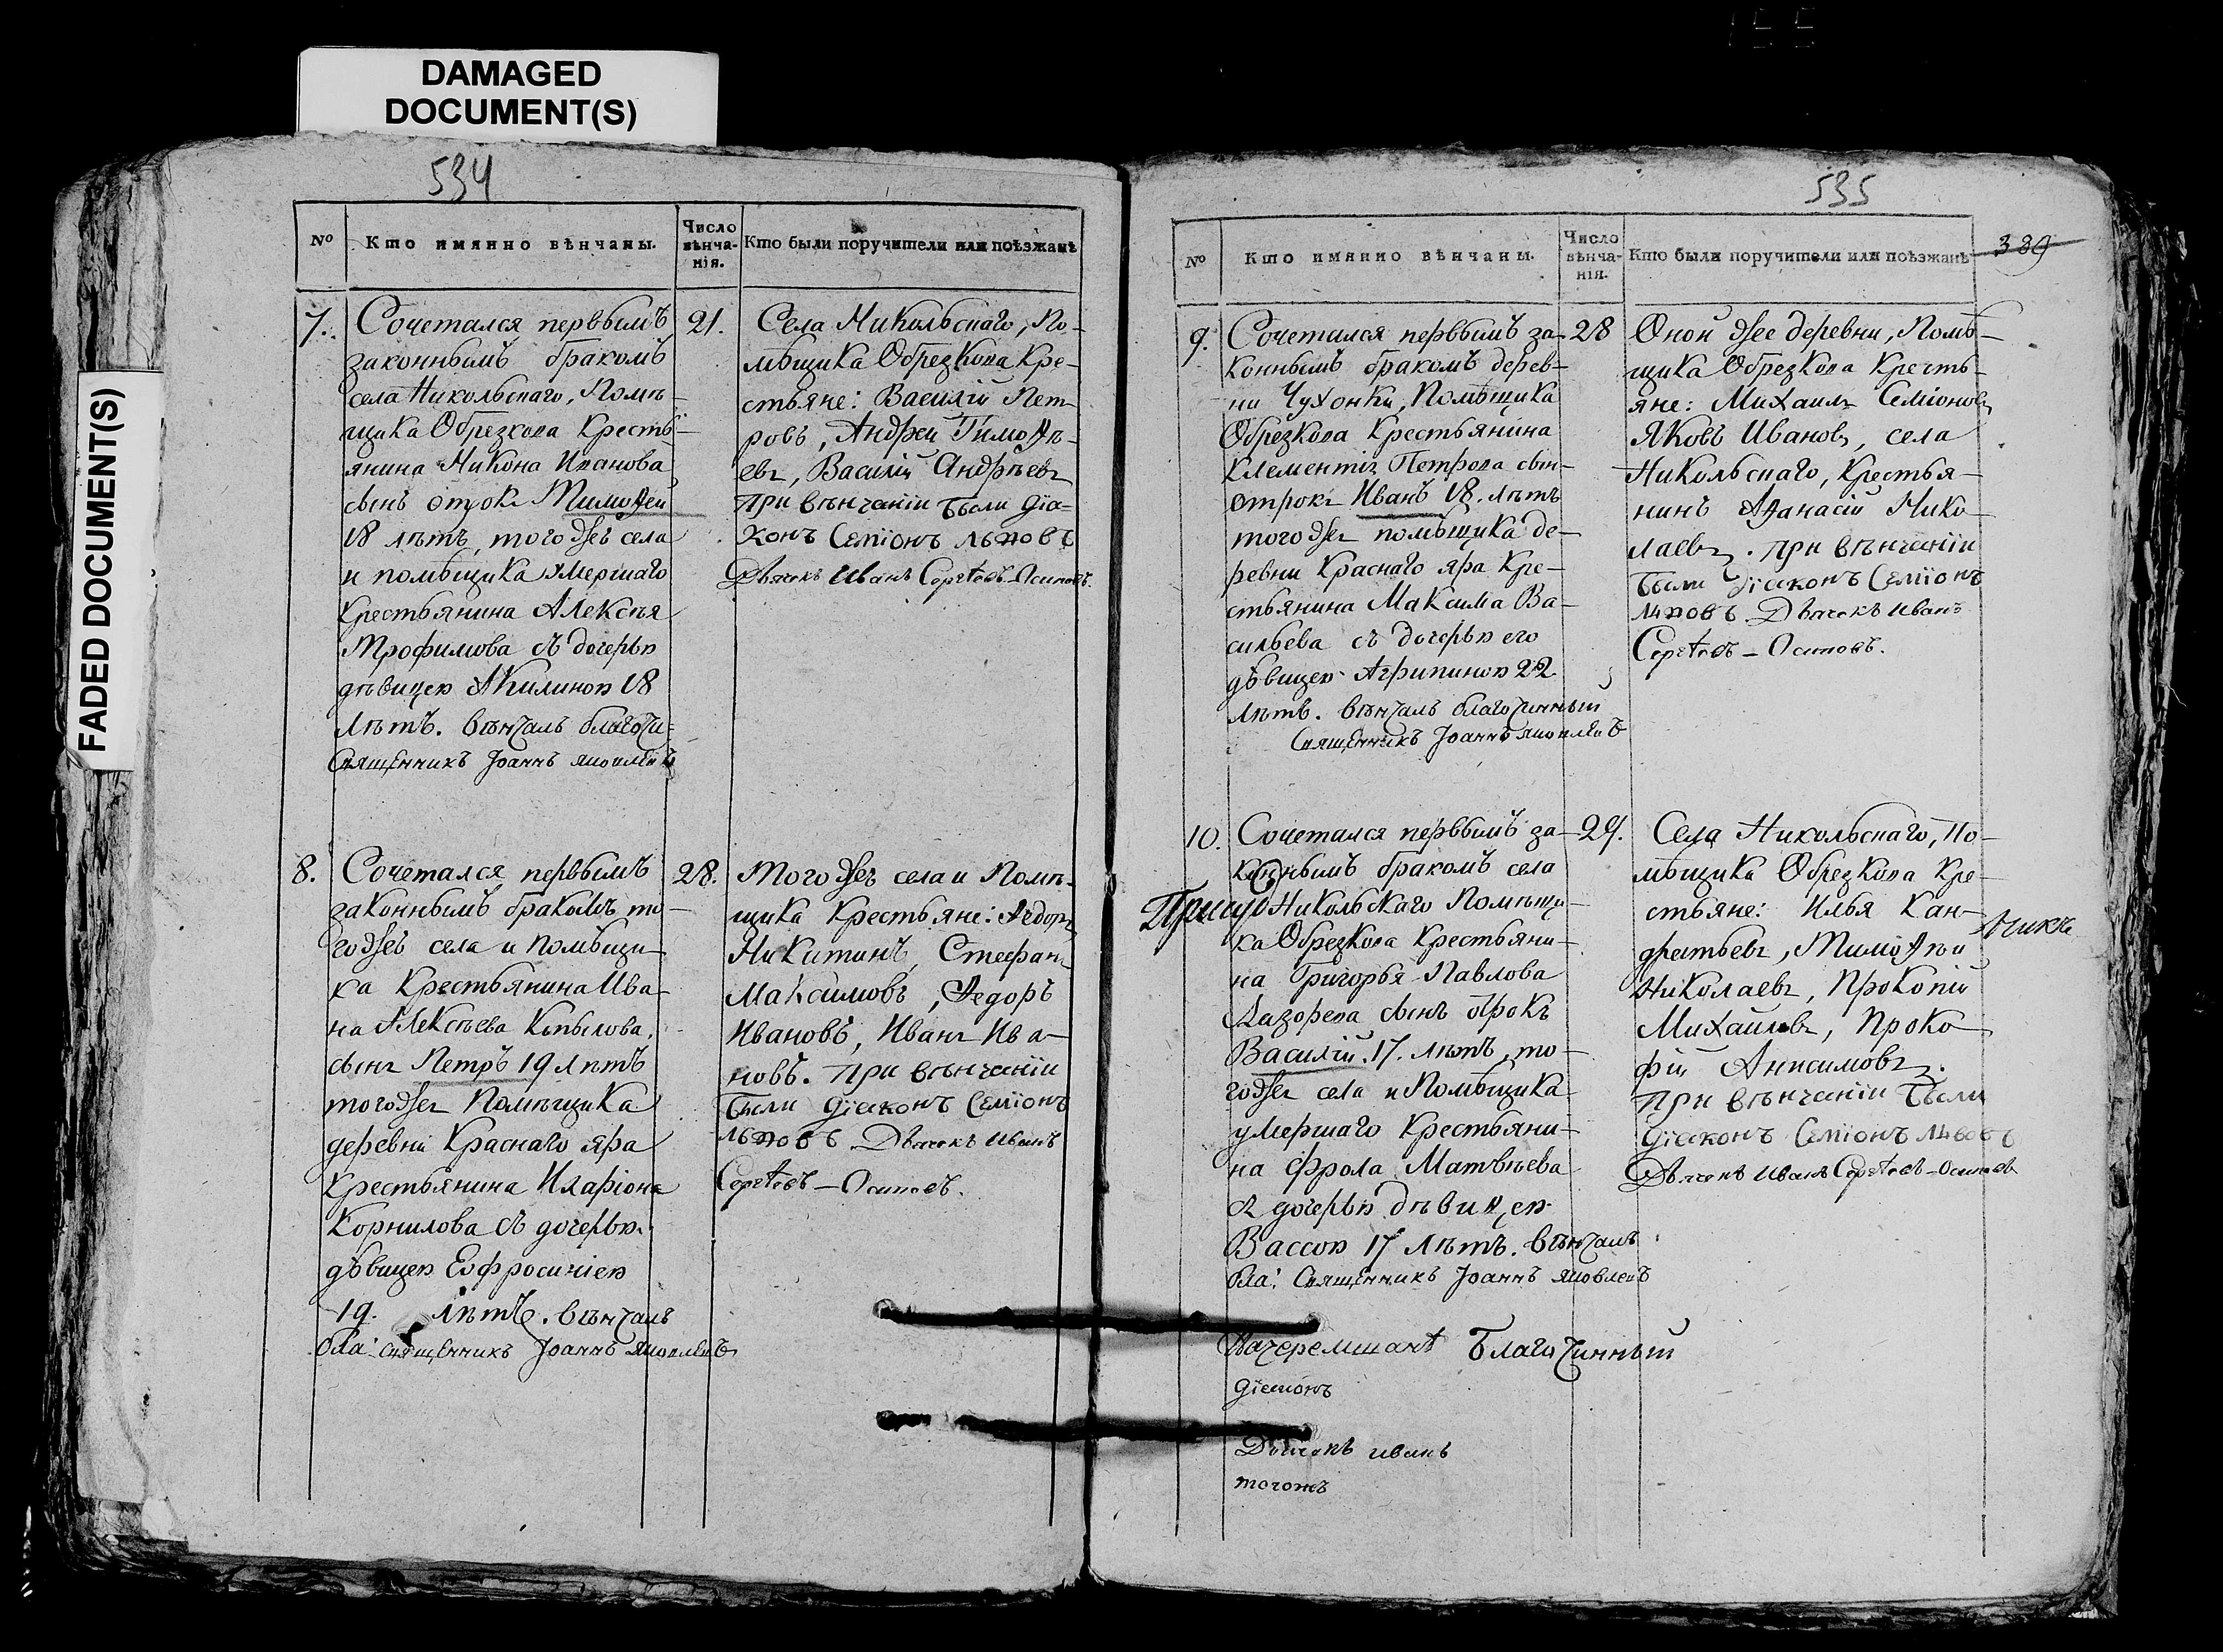 DAMAGED
DOCUMENT(S)
FADED DOCUMENT(S)
534
№
Кто имянно вѣнчаны.
Число
вѣнча-
нія.
Кто были поручители или поѣзжанѣ
7.
Сочетался первымъ
законнымъ бракомъ
села Никольскаго, Помѣ-
щика Обрезкова Кресть-
янина Никона Иванова
сынъ отрокъ Тимоѳей
18 лѣтъ, тогожъ села
и помѣщика умершаго
Крестьянина Алексѣя
Трофимова съ дочерью
дѣвицею Акилиною 18
лѣтъ. вѣнчалъ благочи:
Священникъ Іоаннъ Яковлевъ
21.
Села Никольскаго, По-
мѣщика Обрезкова Кре-
стьяне: Василій Пет-
ровъ, Андрей Тимоѳѣ-
евъ, Василій Андрѣевъ
при вѣнчаніи были діа-
конъ Семіонъ Львовъ
Дьячекъ Иванъ Сергѣевъ-Осиповъ.
8.
Сочетался первымъ
законнымъ бракомъ то-
гожъ села и помѣщи-
ка Крестьянина Ива-
на Алексѣева Копылова
сынъ Петръ 19 лѣтъ
тогожъ Помѣщика
деревни Краснаго яра
Крестьянина Иларіона
Корнилова съ дочерью
дѣвицею Евфросиніею
19. лѣтъ. вѣнчалъ
бла: священникъ Іоаннъ Яковлевъ
28.
Тогожъ села и Помѣ-
щика Крестьяне: Ѳедоръ
Никитинъ, Стефанъ
Максимовъ, Ѳедоръ
Ивановъ, Иванъ Ива-
новъ. при вѣнчаніи
были діаконъ Семіонъ
Львовъ Дьячекъ Иванъ
Сергѣевъ-Осиповъ.
535
389
№
Кто имянно вѣнчаны.
Число
вѣнча-
нія.
Кто были поручители или поѣзжанѣ
9.
Сочетался первымъ за-
коннымъ бракомъ дерев-
ни Чухонки, Помѣщика
Обрезкова Крестьянина
Клементія Петрова сын-
отрокъ Иванъ 18. лѣтъ
тогожъ помѣщика де-
ревни Краснаго яра Кре-
стьянина Максима Ва-
сильева съ дочерью его
дѣвицею Агрипиною 22
лѣтъ. вѣнчалъ благочинный
Священникъ Іоаннъ Яковлевъ
28
Оной же деревни, Помѣ-
щика Обрезкова Кресть-
яне: Михаилъ Семіоновъ
Яковъ Ивановъ, села
Никольскаго, Крестья-
нинъ Аѳанасій Нико-
лаевъ. при вѣнчаніи
были діаконъ Семіонъ
Львовъ Дьячекъ Иванъ
Сергѣевъ-Осиповъ.
10.
Сочетался первымъ за-
коннымъ бракомъ села
Никольскаго Помѣщи-
ка Обрезкова Крестьяни-
на Григорья Павлова
Лазорева сынъ отрокъ
Василій. 17. лѣтъ, то-
гожъ села и Помѣщика
умершаго Крестьяни-
на Фрола Матвѣева
съ дочерью дѣвицею
Вассою 17 лѣтъ. вѣнчалъ
бла: Священникъ Іоаннъ Яковлевъ
29.
Села Никольскаго, По-
мѣщика Обрезкова Кре-
стьяне: Илья Кан-
дратьевъ, Тимоѳѣй
Николаевъ, Прокопій
Михайловъ, Проко-
фій Анисимовъ.
при вѣнчаніи были
діаконъ Семіонъ Львовъ
Дьячекъ Иванъ Сергѣевъ-Осиповъ
Благочинный
Дьячекъ Иванъ